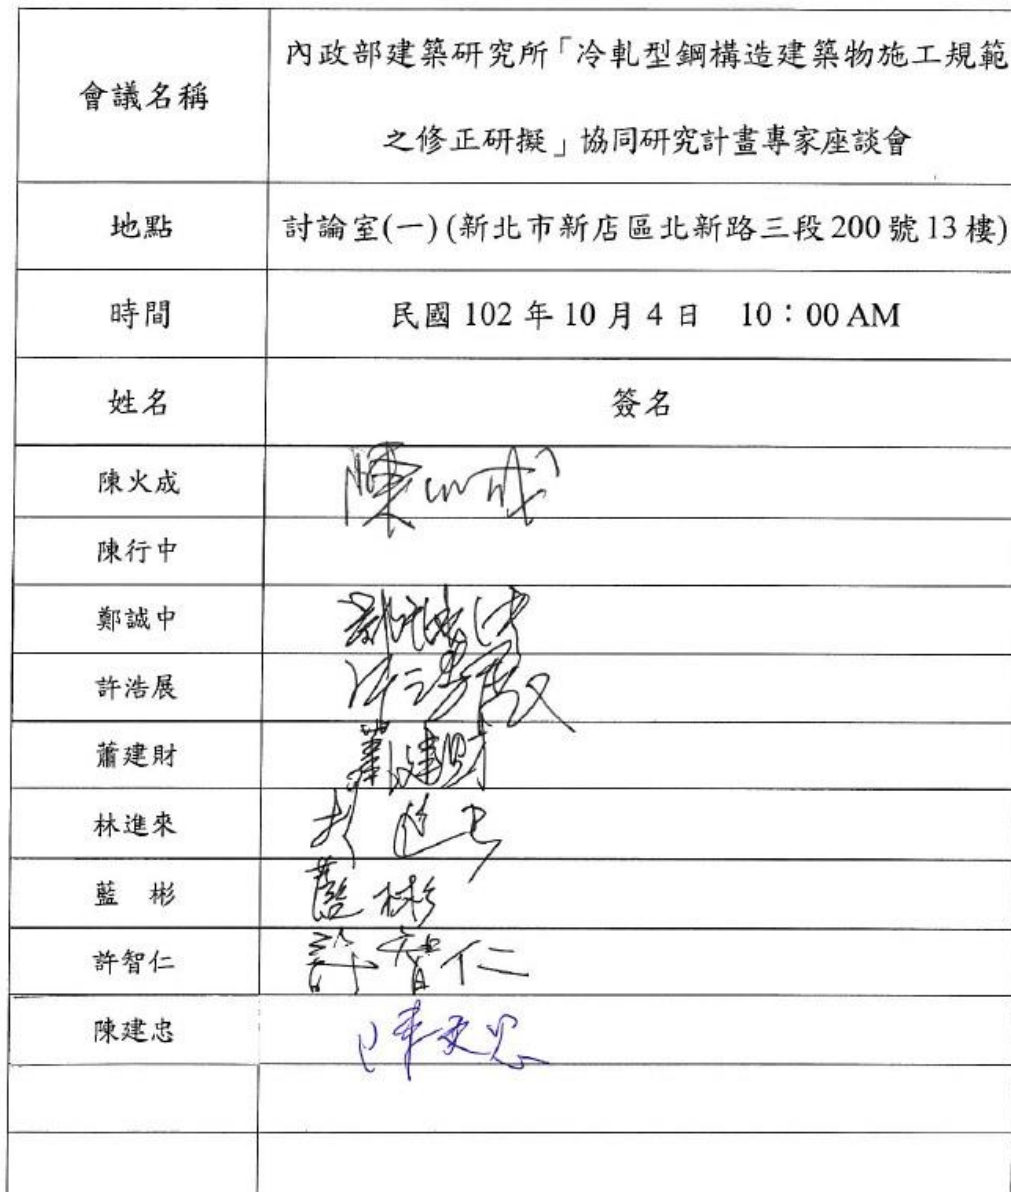 會議名稱
內政部建築研究所「冷軋型鋼構造建築物施工規範
之修正研擬」協同研究計畫專家座談會
地點
討論室(一)(新北市新店區北新路三段200號13樓)
時間
民國 102 年 10 月 4 日 10：00 AM
姓名
簽名
陳火成
陳火成
陳行中
鄭誠中
許浩展
許浩展
蕭建財
蕭建財
林進來
藍 彬
藍彬
許智仁
許智仁
陳建忠